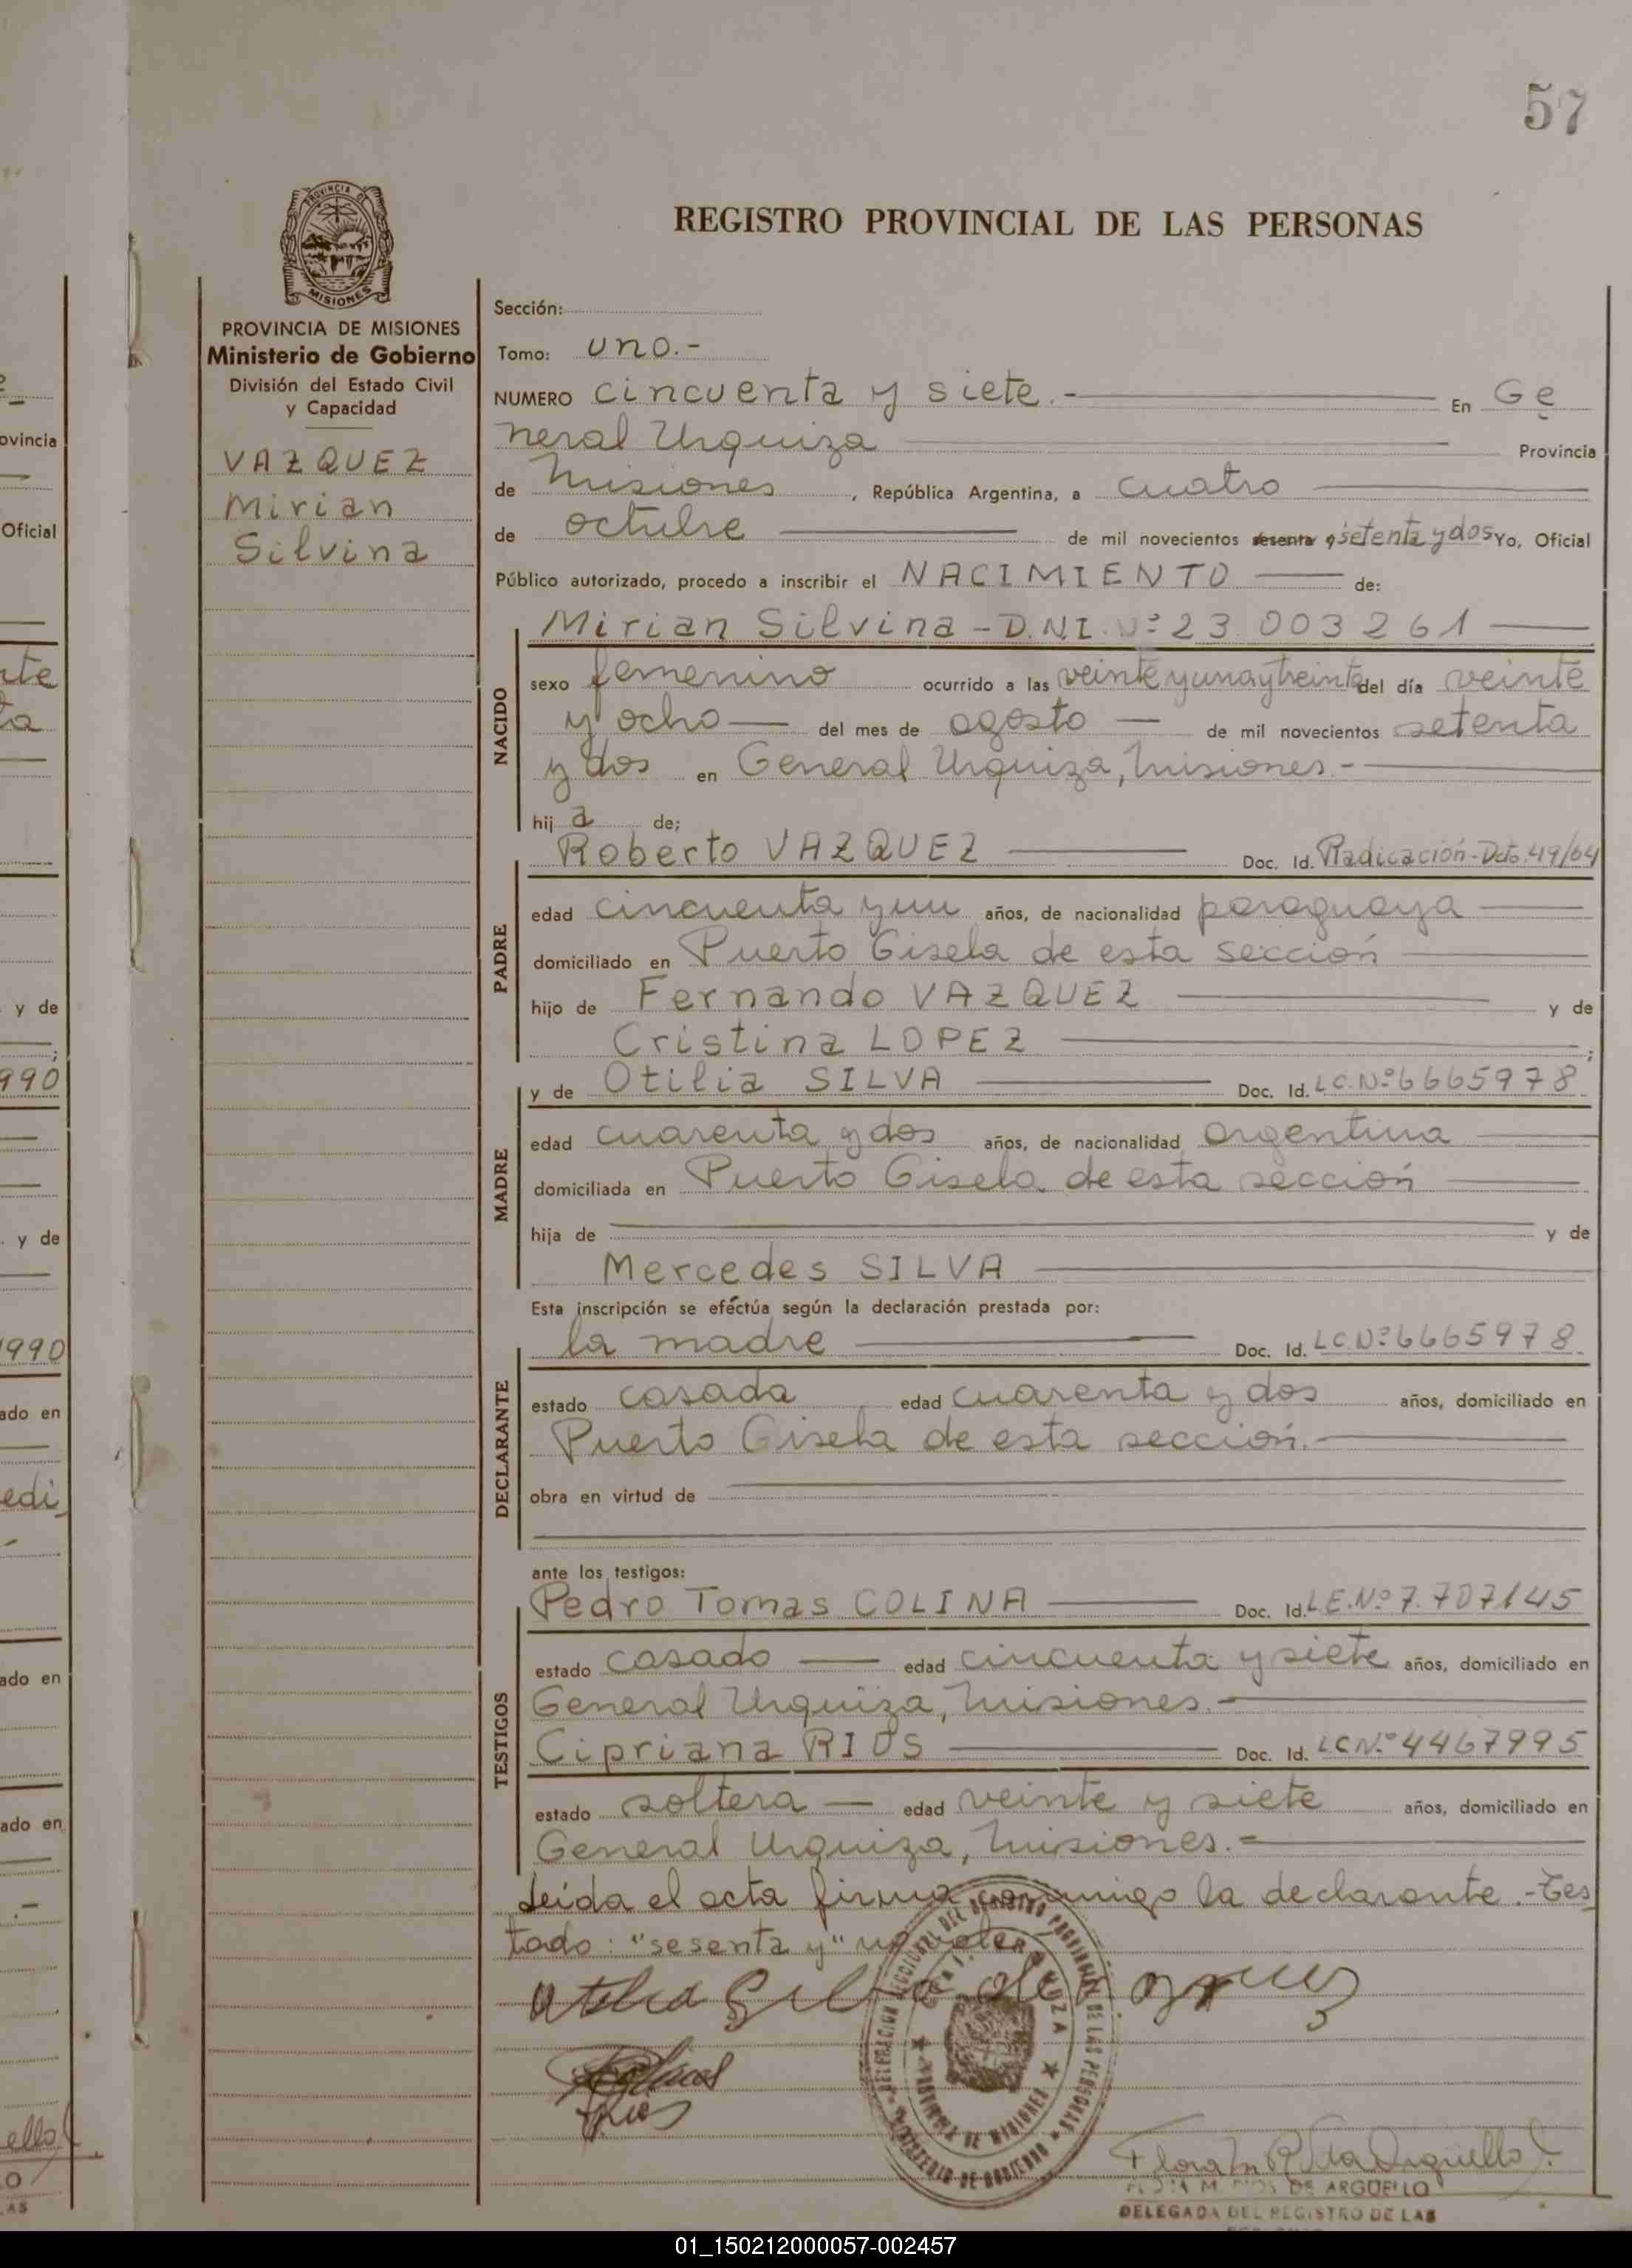 57
PROVINCIA DE
MISIONES
REGISTRO PROVINCIAL DE LAS PERSONAS
PROVINCIA DE MISIONES
Ministerio de Gobierno
División del Estado Civil
y Capacidad
VAZQUEZ
Mirian
Silvina
Sección:
Tomo: uno.-
NUMERO cincuenta y siete.- En Ge
neral Urquiza Provincia
de Misiones, República Argentina, a cuatro
de octubre de mil novecientos sesenta y setenta y dos Yo, Oficial
Público autorizado, procedo a inscribir el NACIMIENTO de:
NACIDO
Mirian Silvina - D.N.I. Nº 23 003 261
sexo femenino ocurrido a las veinte y una y treinta del día veinte
y ocho del mes de agosto de mil novecientos setenta
y dos en General Urquiza, Misiones.-
hij a de;
PADRE
Roberto VAZQUEZ Doc. Id. Radicación-Dcto.49/64
edad cincuenta y un años, de nacionalidad paraguaya
domiciliado en Puerto Gisela de esta sección
hijo de Fernando VAZQUEZ y de
Cristina LOPEZ ;
MADRE
y de Otilia SILVA Doc. Id. L.C.Nº6665978
edad cuarenta y dos años, de nacionalidad argentina
domiciliada en Puerto Gisela de esta sección
hija de y de
Mercedes SILVA
Esta inscripción se efectúa según la declaración prestada por:
DECLARANTE
la madre Doc. Id. L.C.Nº6665978
estado casada edad cuarenta y dos años, domiciliado en
Puerto Gisela de esta sección.
obra en virtud de
ante los testigos:
TESTIGOS
Pedro Tomas COLINA Doc. Id. L.E.Nº7.707145
estado casado edad cincuenta y siete años, domiciliado en
General Urquiza, Misiones.-
Cipriana RIOS Doc. Id. L.C.Nº4467995
estado soltera edad veinte y siete años, domiciliado en
General Urquiza, Misiones.-
Leída el acta firma conmigo la declarante.-Tes
tado: "sesenta y" no vale.
Otilia Silva de Vazquez
DELEGACION SECCIONAL DEL REGISTRO PROVINCIAL DE LAS PERSONAS
MINISTERIO DE GOBIERNO
GRAL. URQUIZA
PROVINCIA DE MISIONES
Rios
DE ARGÜELLO
DELEGADA DEL REGISTRO DE LAS
01_150212000057-002457
ovincia
Oficial
y de
990
y de
1990
ado en
ado en
ado en